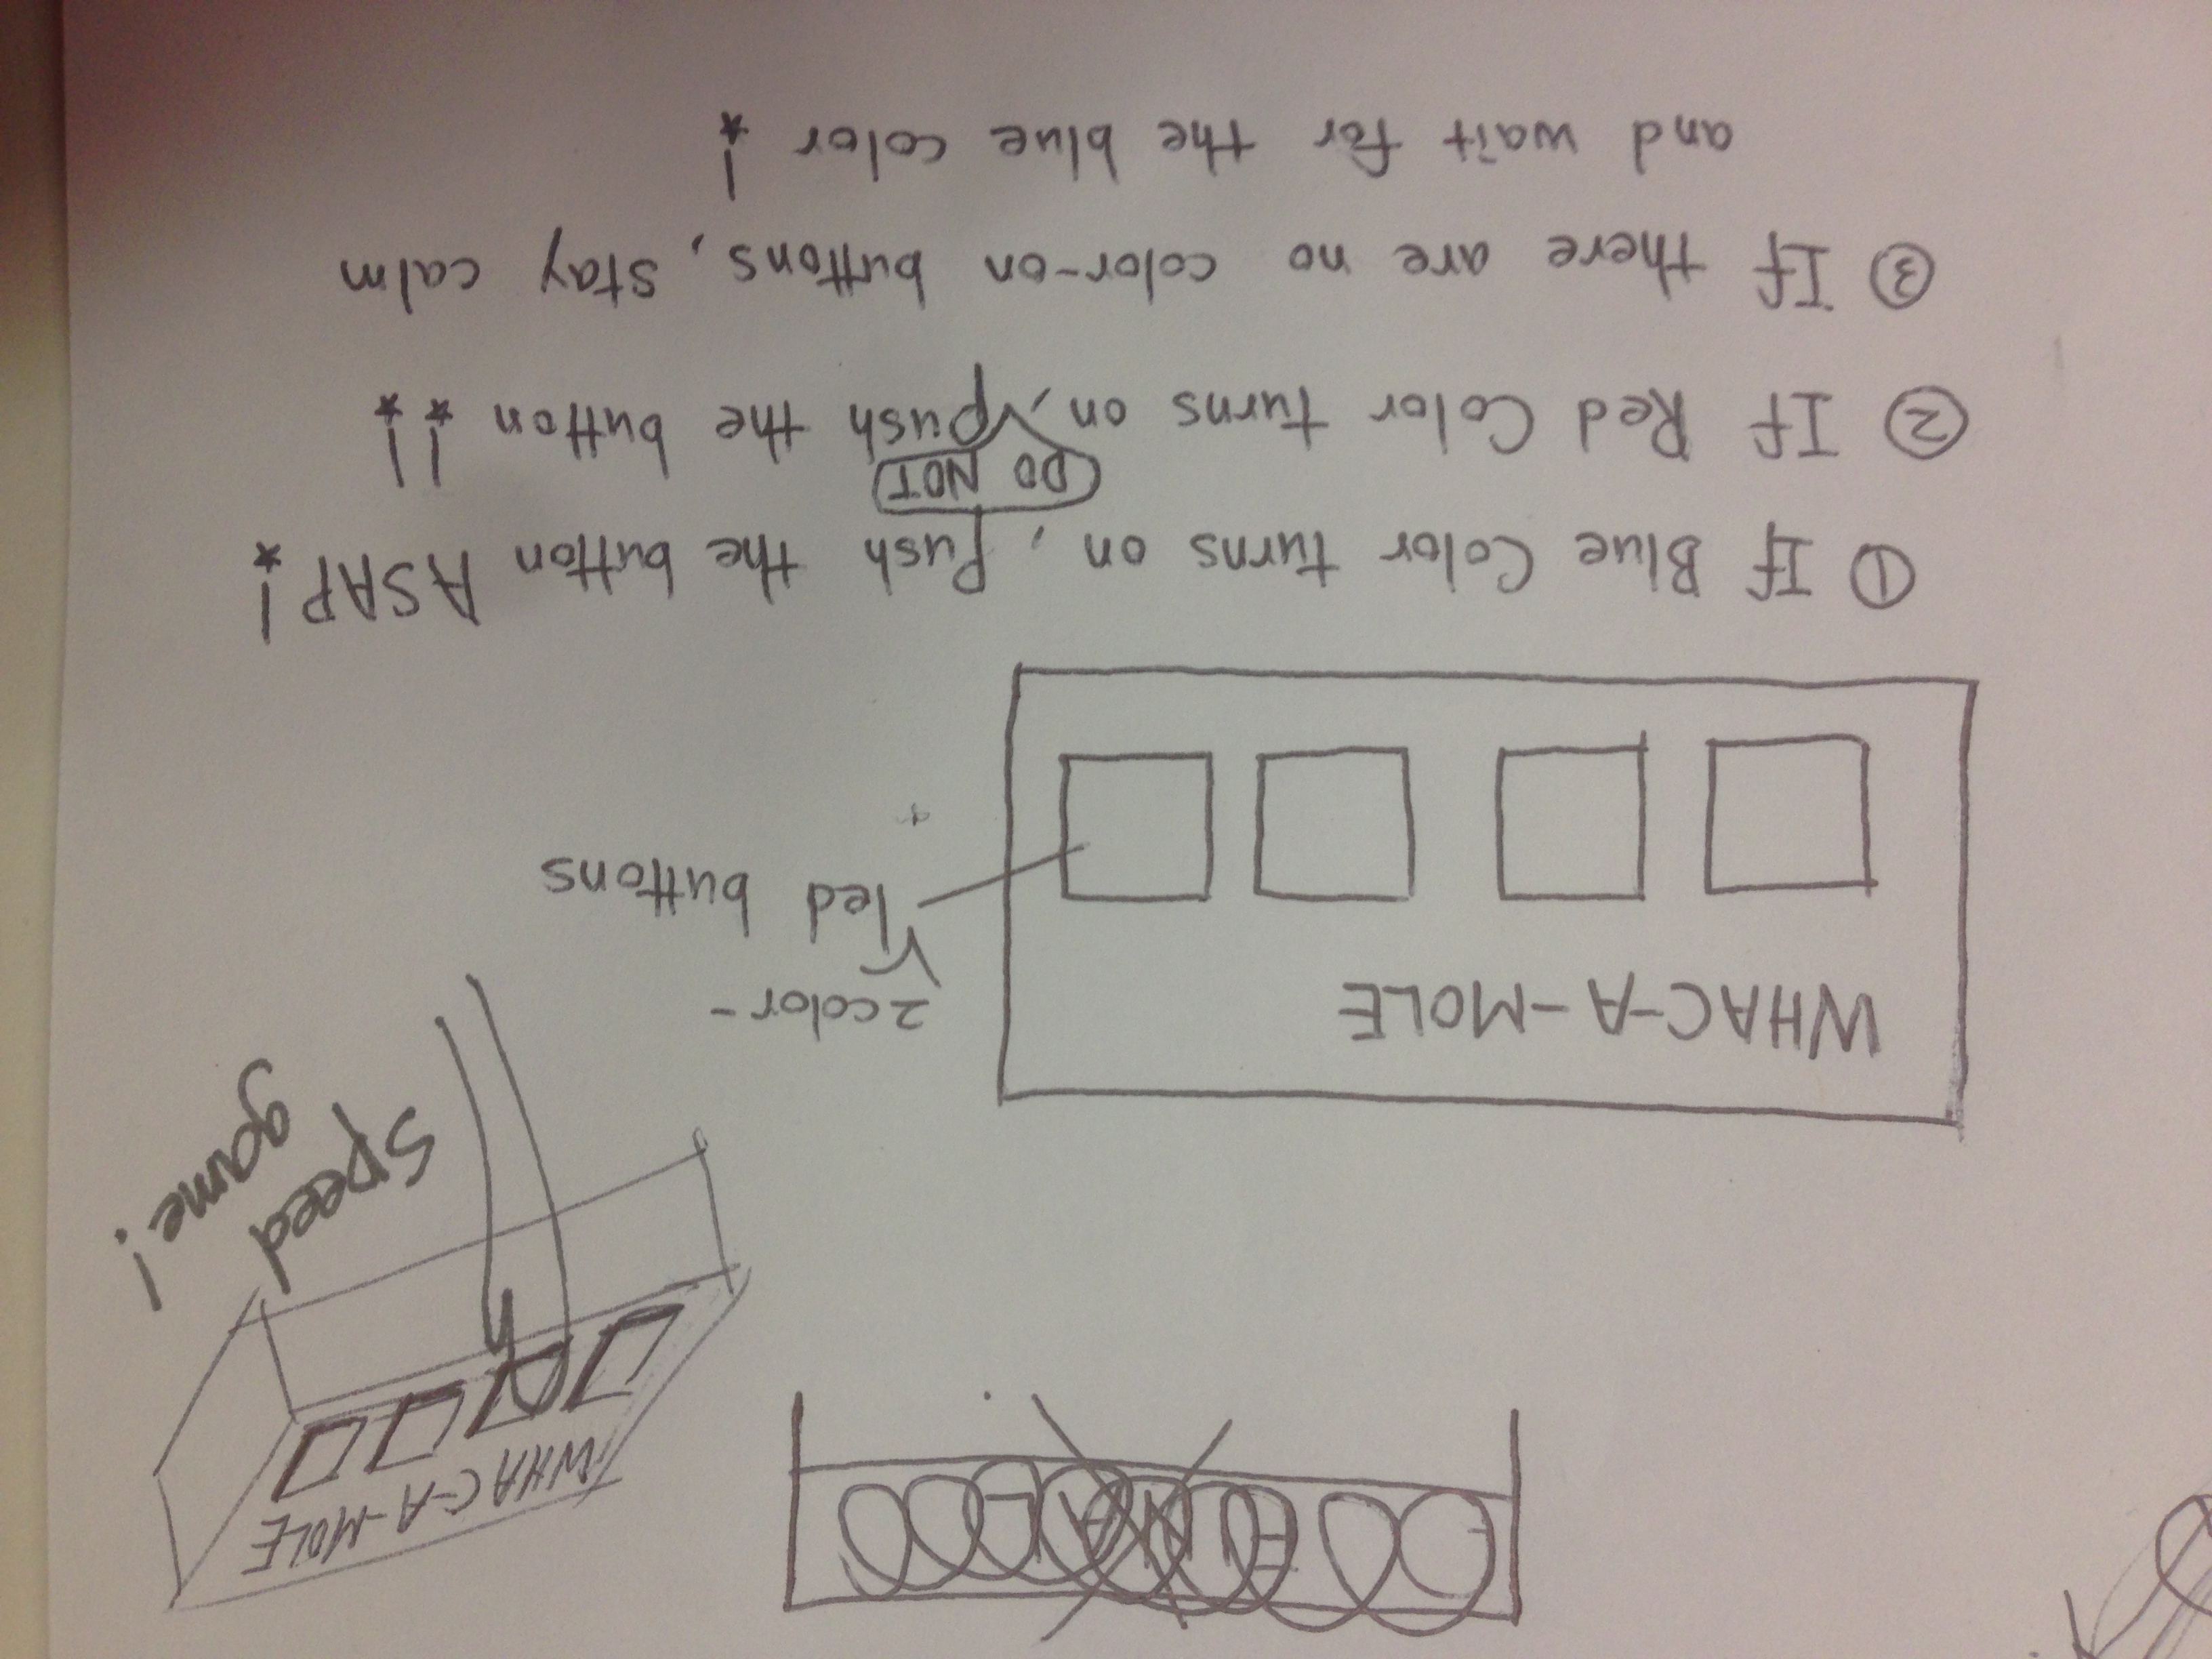 WHAC-A-MOLE
Speed
game!
WHAC-A-MOLE
2color-
led buttons
① If Blue Color turns on, Push the button ASAP!
DO NOT
② If Red Color turns on, push the button !!
③ If there are no color-on buttons, stay calm
and wait for the blue color !